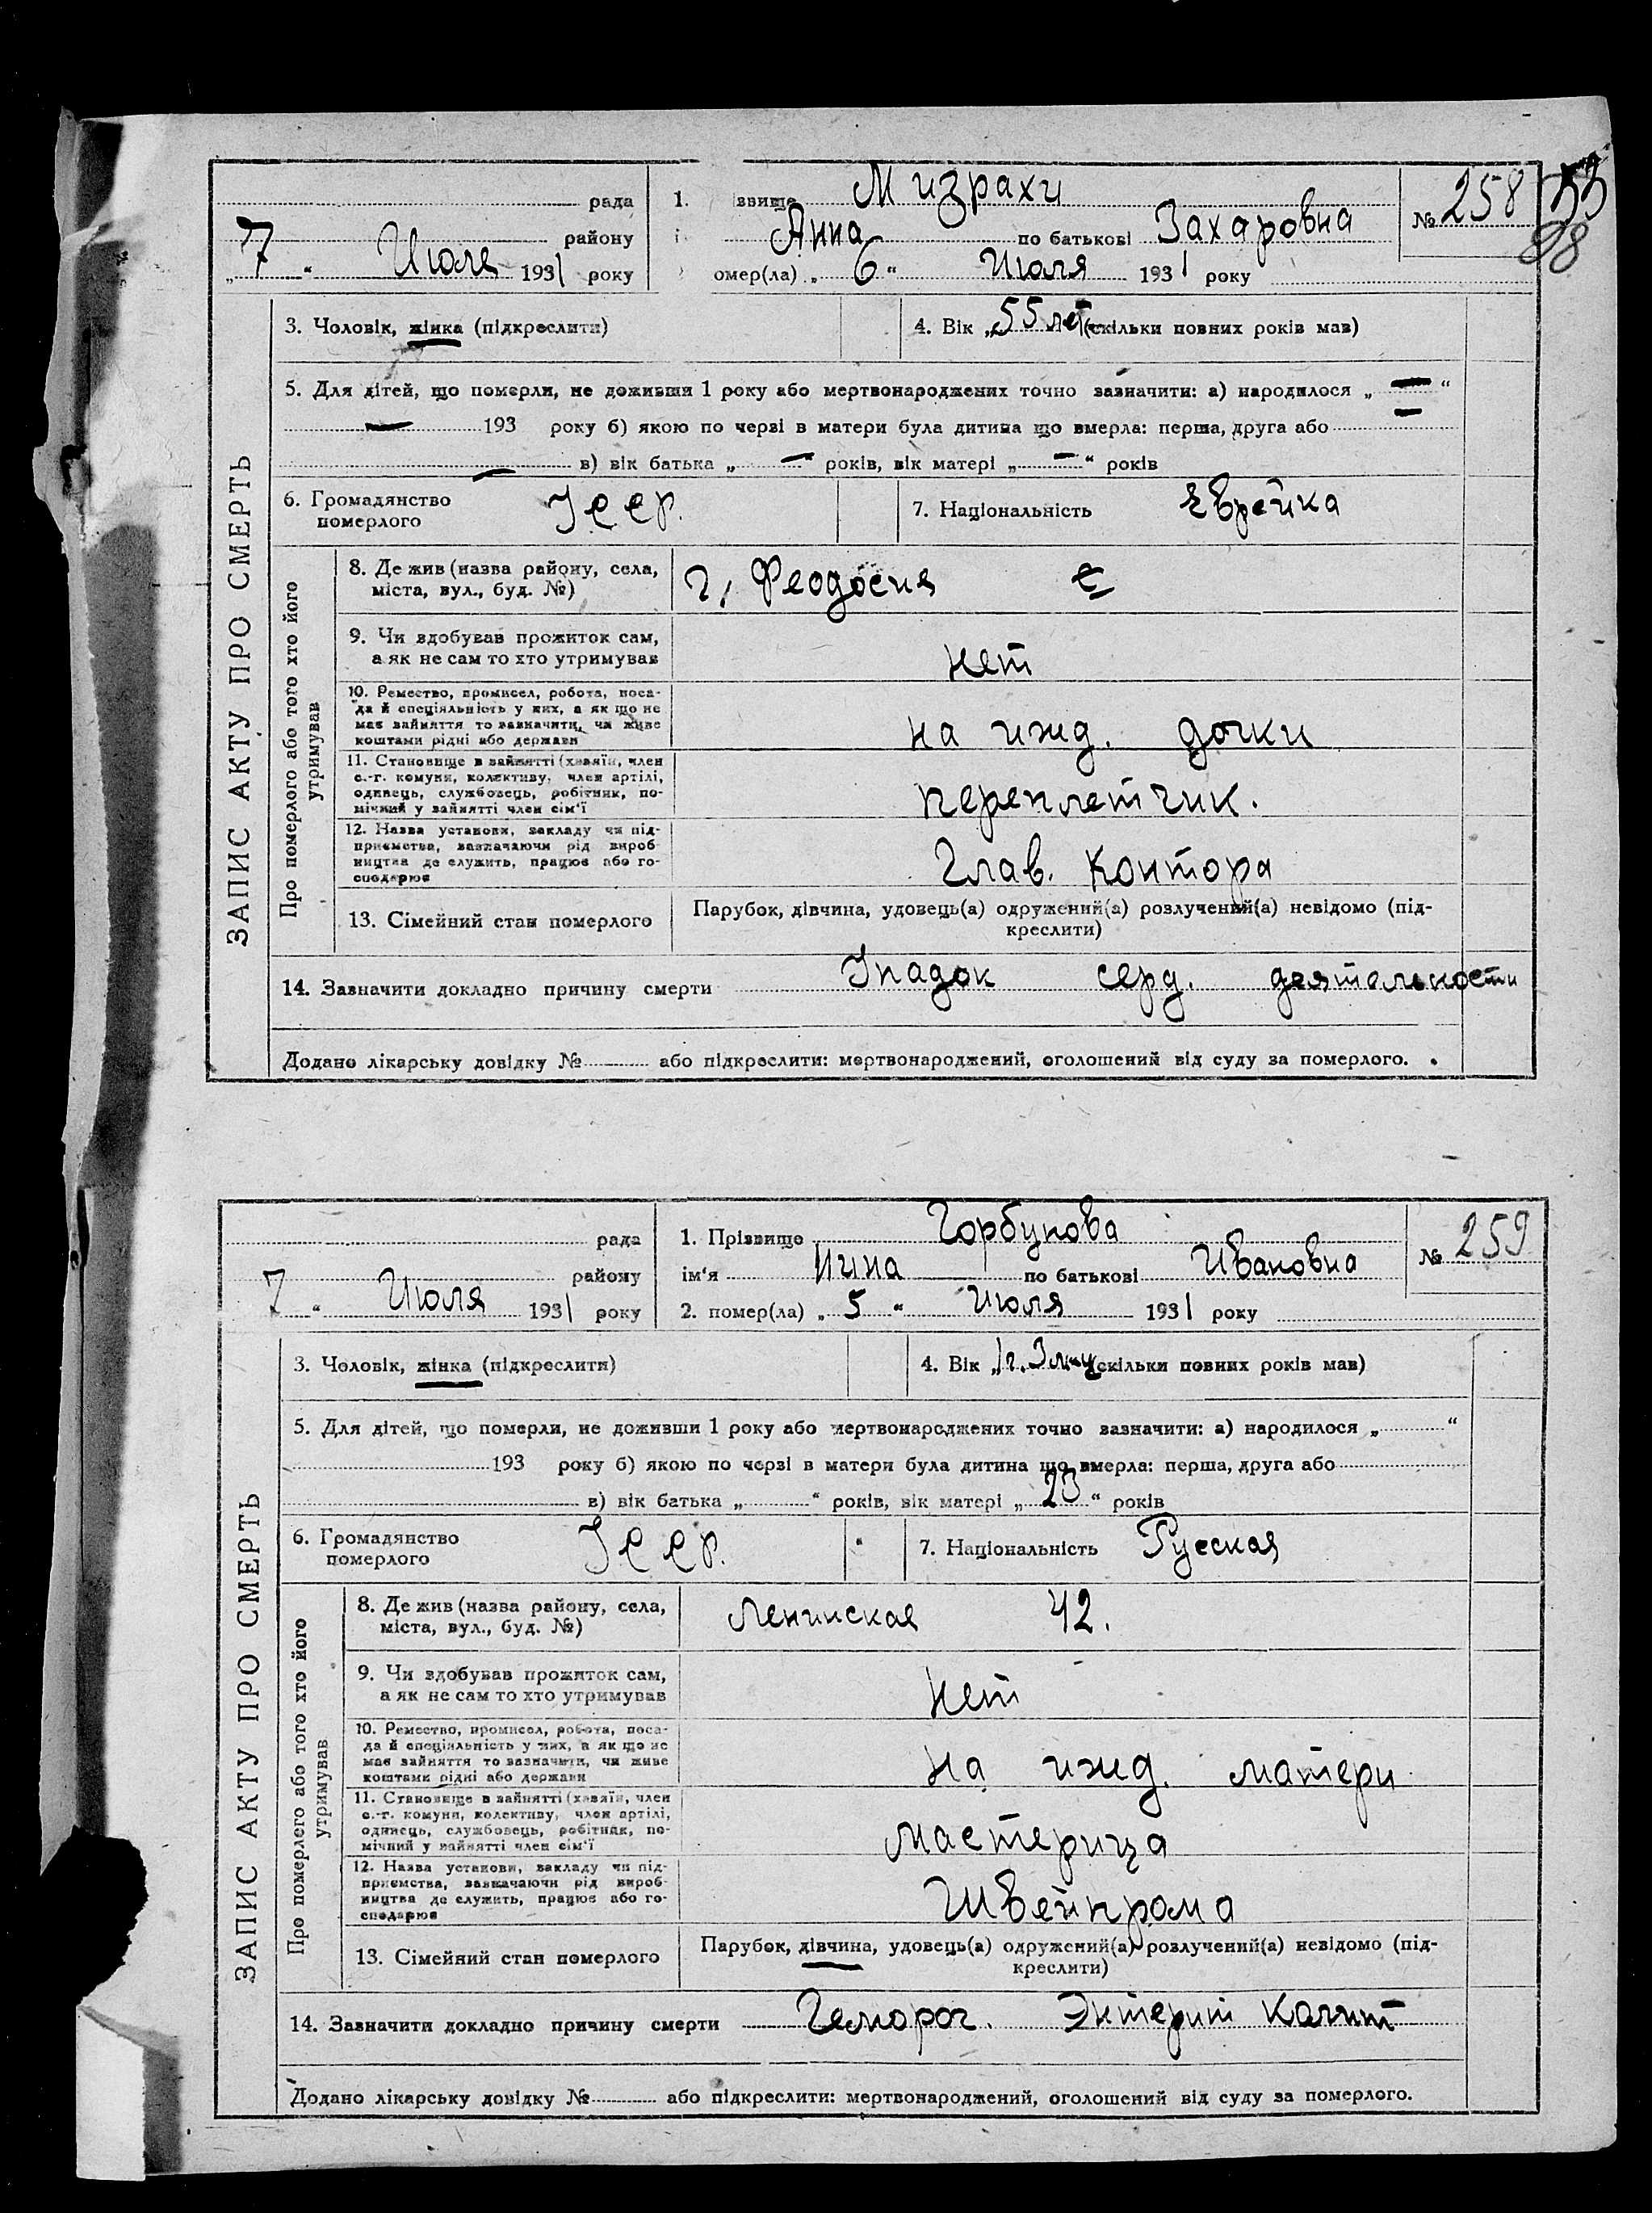 258 53
88
рада 1. звище Мизрахи №
району Анна по батькові Захаровна
„7“ Июля 1931 року омер(ла) „6“ Июля 1931 року
3. Чоловік, жінка (підкреслити) 4. Вік „55 лет (скільки повних років мав)
5. Для дітей, що померли, не доживши 1 року або мертвонароджених точно зазначити: а) народилося „ — “
— 193 року б) якою по черзі в матери була дитина що вмерла: перша, друга або —
— в) вік батька „ — “ років, вік матері „ — “ років
6. Громадянство УССР. 7. Національність Еврейка
померлого
ЗАПИС АКТУ ПРО СМЕРТЬ
Про померлого або того хто його
утримував
8. Де жив (назва району, села, г. Феодосия
міста, вул., буд. №)
9. Чи здобував прожиток сам, нет
а як не сам то хто утримував
10. Ремество, промисел, робота, поса-
да й спеціяльність у них, а як що не
має зайняття то зазначити, чи живе на ижд. дочки
коштами рідні або держави
11. Становище в зайнятті (хазяїн, член
с.-г. комуни, колективу, член артілі,
одинець, службовець, робітник, по- переплетчик.
мічний у зайнятті член сім'ї
12. Назва установи, закладу чи під-
приємства, зазначаючи рід вироб-
ництва де служить, працює або го- Глав. Контора
сподарює
13. Сімейний стан померлого Парубок, дівчина, удовець(а) одружений(а) розлучений(а) невідомо (під-
креслити)
14. Зазначити докладно причину смерти Упадок серд. деятельности
Додано лікарську довідку № або підкреслити: мертвонароджений, оголошений від суду за померлого.
рада 1. Прізвище Горбунова № 259
району ім'я Нина по батькові Ивановна
7 “ Июля 1931 року 2. помер(ла) „5“ Июля 1931 року
3. Чоловік, жінка (підкреслити) 4. Вік „1 г. 3 м-ц (скільки повних років мав)
5. Для дітей, що померли, не доживши 1 року або мертвонароджених точно зазначити: а) народилося „ “
193 року б) якою по черзі в матери була дитина що вмерла: перша, друга або
в) вік батька „ “ років, вік матері „23“ років
6. Громадянство УССР. 7. Національність Русская
померлого
ЗАПИС АКТУ ПРО СМЕРТЬ
Про померлого або того хто його
утримував
8. Де жив (назва району, села, Ленинская 42.
міста, вул., буд. №)
9. Чи здобував прожиток сам, нет
а як не сам то хто утримував
10. Ремество, промисел, робота, поса-
да й спеціяльність у них, а як що не
має зайняття то зазначити, чи живе на ижд. матери
коштами рідні або держави
11. Становище в зайнятті (хазяїн, член
с.-г. комуни, колективу, член артілі,
одинець, службовець, робітник, по- мастерица
мічний у зайнятті член сім'ї
12. Назва установи, закладу чи під-
приємства, зазначаючи рід вироб-
ництва де служить, працює або го- Швейпрома
сподарює
13. Сімейний стан померлого Парубок, дівчина, удовець(а) одружений(а) розлучений(а) невідомо (під-
креслити)
14. Зазначити докладно причину смерти Геморог. Энтерит колит
Додано лікарську довідку № або підкреслити: мертвонароджений, оголошений від суду за померлого.